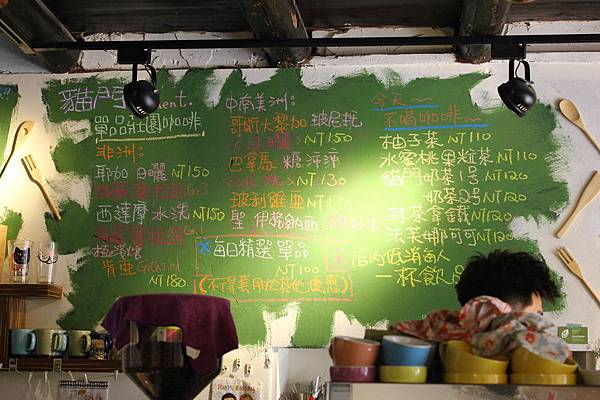 貓門
單品莊園咖啡
非洲:
耶加 日曬 NT150
G.3
西達摩 水洗 NT150
G.1
極淺焙
肯亞
NT180
中南美洲:
哥斯大黎加
<日曬> NT150
巴拿馬
<水洗> NT130
玻利維亞 NT130
聖 伊格納西
每日精選單品
NT100
(不得套用於其他優惠)
今天~~
不喝咖啡~
柚子茶 NT110
水蜜桃果粒茶 NT110
貓門奶茶1号 NT120
奶茶2号 NT120
抹茶拿鐵 NT120
法芙娜可可 NT120
店內低消每人
一杯飲品